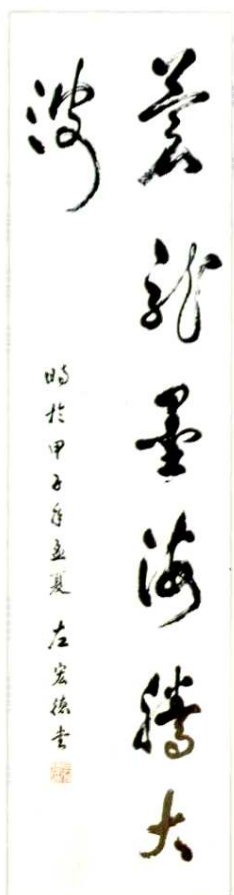 蒼龍墨海騰大
波
時於甲子年孟夏 左宏德书